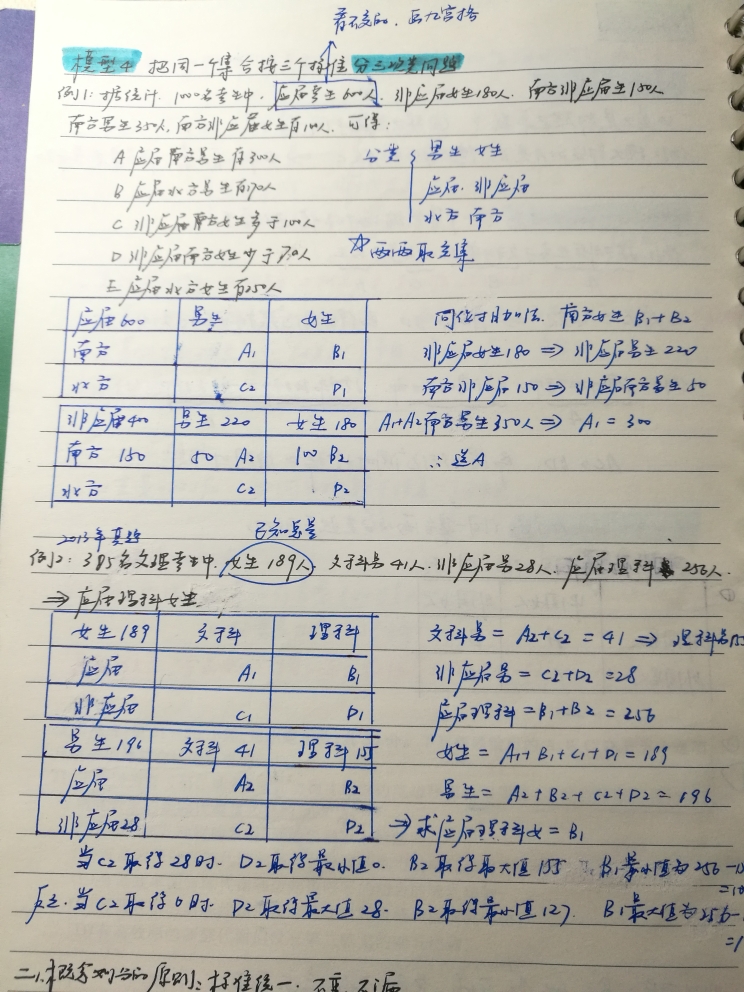 看不交的. 画九宫格
模型4 把同一个集合按三个标准分三次类问题
例1: 据统计. 100名考生中. 应届考生600人. 非应届女生180人. 南方非应届生150人
南方男生350人, 南方非应届女生有100人. 可得:
A 应届南方男生有300人
B 应届北方男生有170人
C 非应届南方女生多于100人
D 非应届南方女生少于70人
E 应届北方女生有250人
分类 男生 女生
应届. 非应届
北方 南方
两两取交集
应届600 男生 女生
南方 A1 B1
北方 C2 D1
非应届400 男生 220 女生 180
南方 150 50 A2 100 B2
北方 C2 D2
同位才月加法. 南方女生 B1+B2
非应届女生180 ⇒ 非应届男生220
南方非应届150 ⇒ 非应届南方男生50
A1+A2南方男生350人 ⇒ A1=300
∴ 选A
2013年真题 已知总量
例2: 385名文理考生中. 女生189人. 文科男41人. 非应届男28人. 应届理科 256人.
⇒ 应届理科女生
女生189 文科 理科
应届 A1 B1
非应届 C1 D1
男生196 文科 41 理科 155
应届 A2 B2
非应届28 C2 D2
文科男 = A2+C2 = 41 ⇒ 理科男15
非应届男 = C2+D2 = 28
应届理科 = B1+B2 = 256
女生 = A1+B1+C1+D1 = 189
男生 = A2+B2+C2+D2 = 196
⇒ 求应届理科女 = B1
当C2取得28时. D2取得最小值0. B2取得最大值155 B1最小值为256-1
=10
反之. 当C2取得0时. D2取得最大值28. B2取得最小值127. B1最大值为256-
=1
二、概念划分的原则: 标准统一. 不重. 不漏